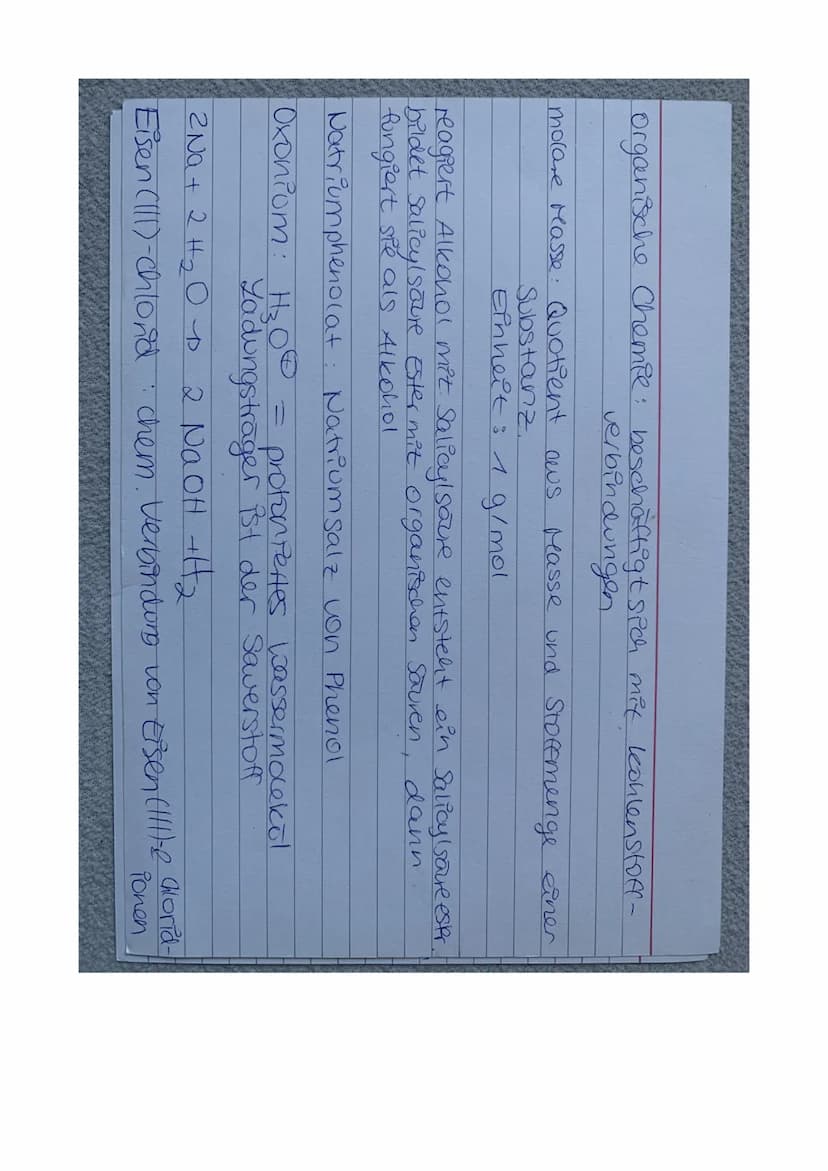 organische Chemie: beschäftigt sich mit kohlenstoff-
verbindungen
molare Masse: Quotient aus Masse und Stoffmenge einer
Substanz.
Einheit: 1 g/mol
reagiert Alkohol mit Salicylsäure entsteht ein Salicylsäureester
bildet Salicylsäure Ester mit organischen Säuren, dann
fungiert sie als Alkohol
Natriumphenolat: Natriumsalz von Phenol
Oxonium: H₃O⊕ = protoniertes Wassermolekül
Ladungsträger ist der Sauerstoff
2Na + 2 H₂O → 2 NaOH + H₂
Eisen(III)-chlorid: chem. Verbindung von Eisen(III)-& Chlorid-
ionen